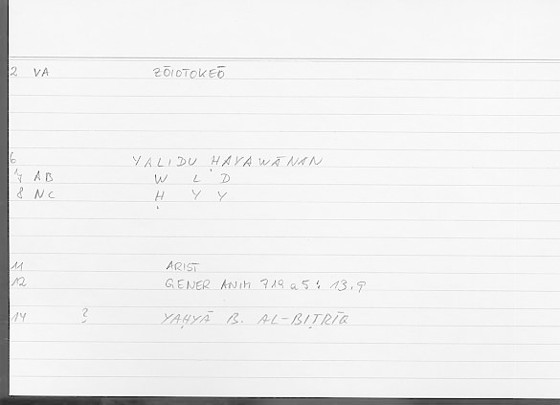 2 VA ZŌIOTOKEŌ
6 YALIDU ḤAYAWĀNAN
7 AB W L D
8 NC Ḥ Y Y
11 ARIST
12 GENER ANIM 719 a 5 : 13.9
14 ? YAḤYĀ B. AL-BIṬRĪQ